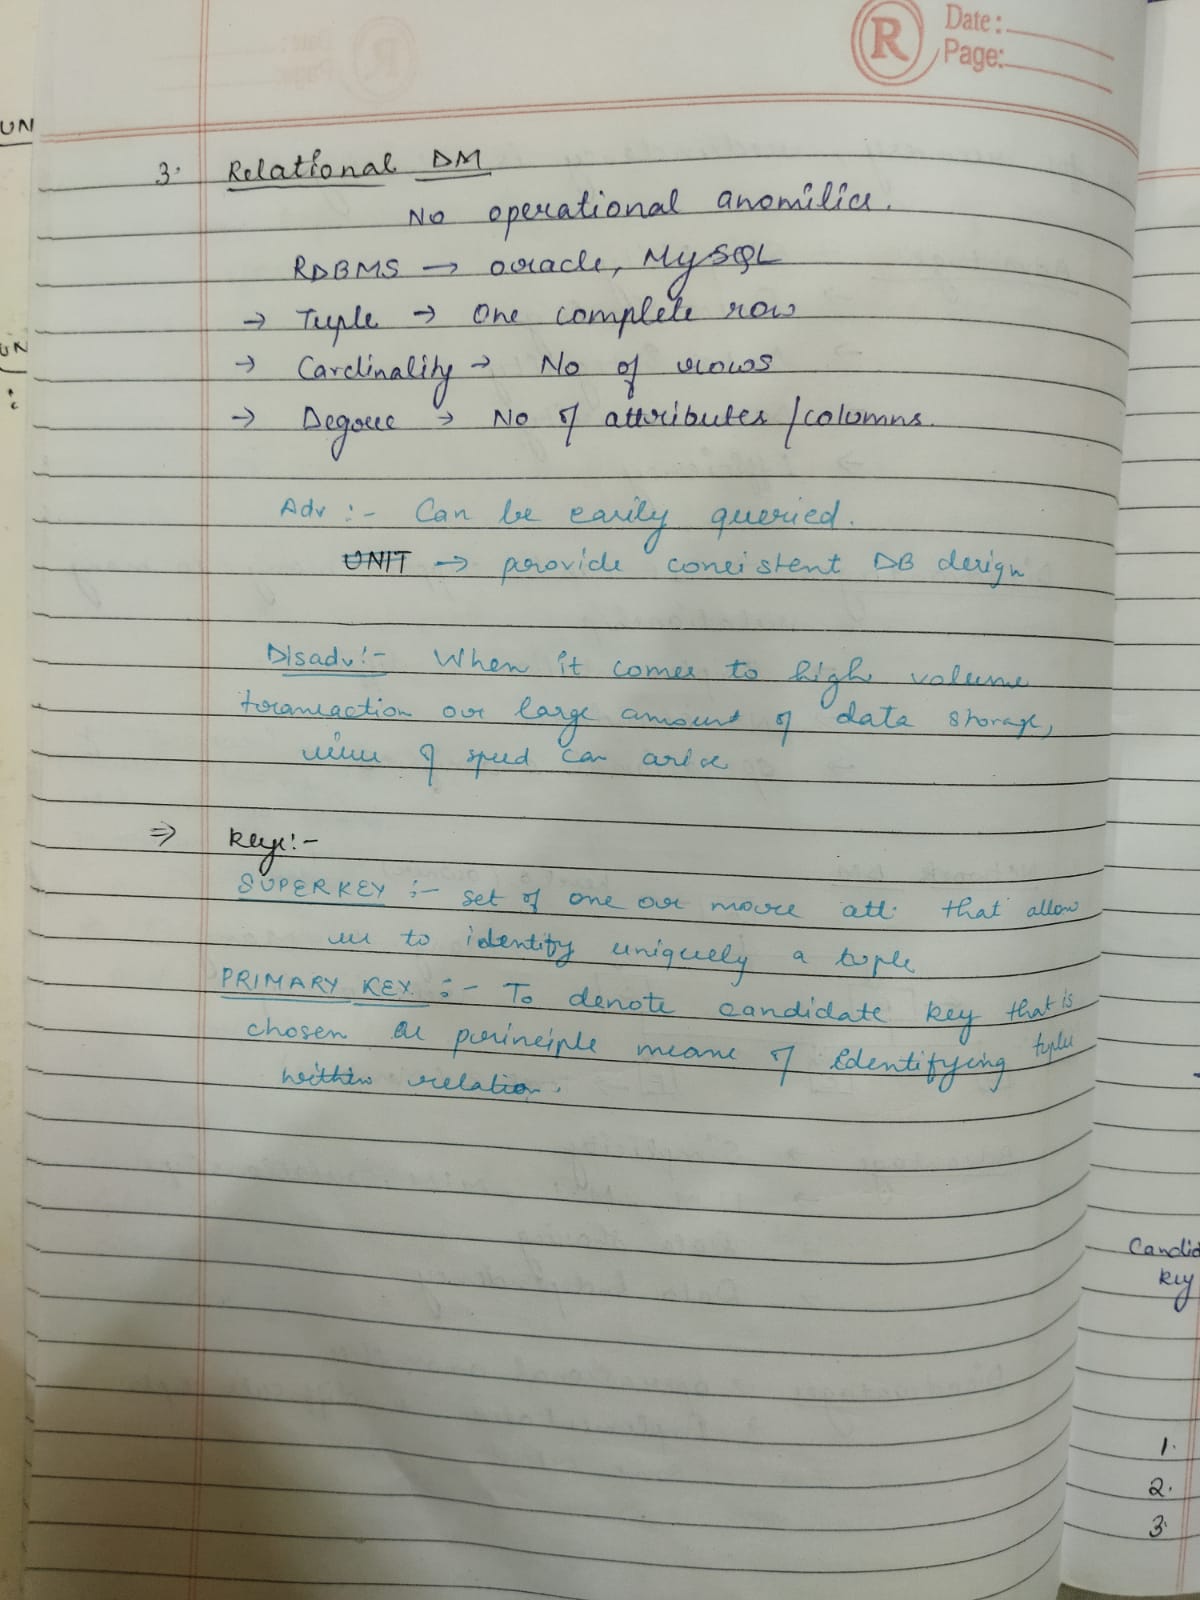 R
Date:
Page:
UN
3. Relational DM
No operational anomilies.
RDBMS → oracle, MySQL
→ Tuple → One complete row
→ Cardinality → No of rows
→ Degree → No of attributes / columns.
Adv :- Can be easily queried.
UNIT → provide consistent DB design
Disadv :- When it comes to high volume
transaction or large amount of data storage,
issues of speed can arise
⇒ Keys :-
SUPERKEY :- set of one or more att. that allow
us to identify uniquely a tuple
PRIMARY KEY :- To denote candidate key that is
chosen as principle means of identifying tuples
within relation.
Candid
key
1.
2.
3.